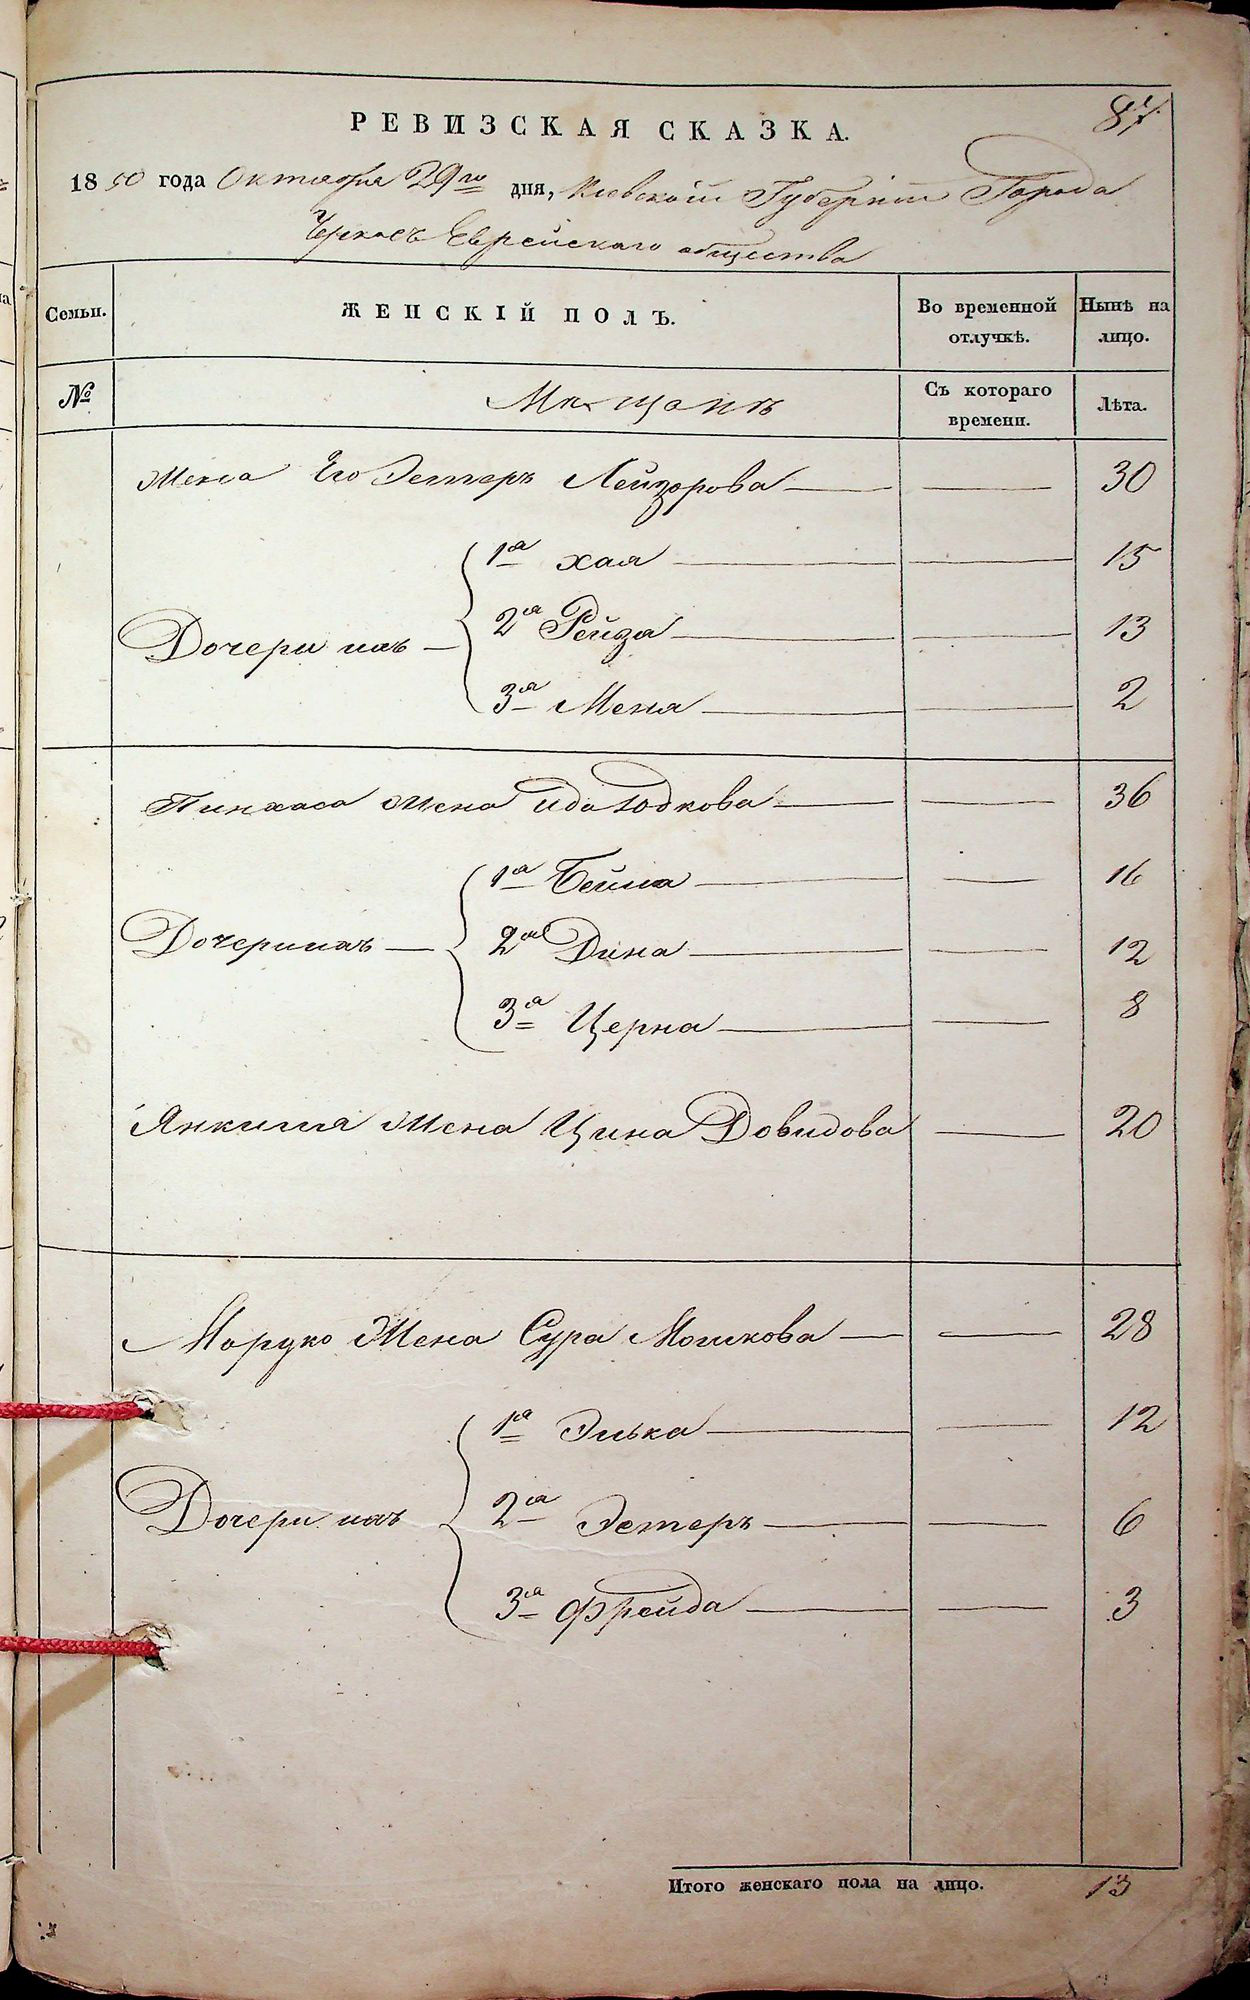 87
РЕВИЗСКАЯ СКАЗКА.
1850 года Октября 29го дня, Киевской Губерніи Города
Черкасъ Еврейскаго общества
Семьи. ЖЕНСКІЙ ПОЛЪ. Во временной отлучкѣ. Нынѣ на лицо.
№ Мѣщанъ Съ котораго времени. Лѣта.
Жена Его Эстеръ Лейзорова 30
1а Хая 15
Дочери ихъ 2а Рейза 13
3а Меня 2
Пинхаса жена Ида Юдкова 36
1а Бейла 16
Дочери ихъ 2а Дина 12
3а Церна 8
Янкиля жена Цина Довидова 20
Мордко Жена Сура Мошкова 28
1а Элька 12
Дочери ихъ 2а Эстеръ 6
3а Фрейда 3
Итого женскаго пола на лицо. 13